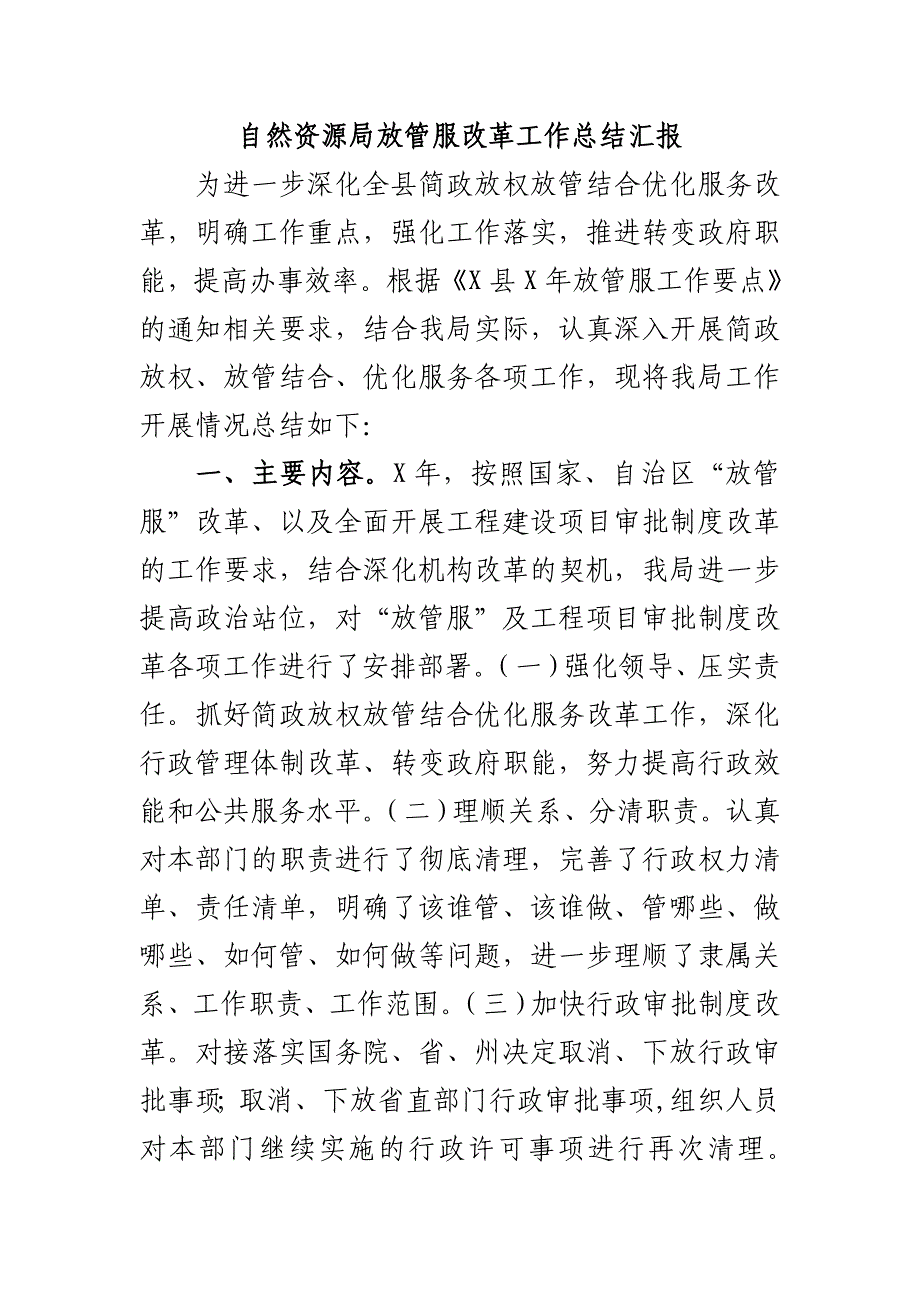 自然资源局放管服改革工作总结汇报
为进一步深化全县简政放权放管结合优化服务改
革，明确工作重点，强化工作落实，推进转变政府职
能，提高办事效率。根据《X 县 X 年放管服工作要点》
的通知相关要求，结合我局实际，认真深入开展简政
放权、放管结合、优化服务各项工作，现将我局工作
开展情况总结如下：
一、主要内容。X 年，按照国家、自治区“放管
服”改革、以及全面开展工程建设项目审批制度改革
的工作要求，结合深化机构改革的契机，我局进一步
提高政治站位，对“放管服”及工程项目审批制度改
革各项工作进行了安排部署。（一）强化领导、压实责
任。抓好简政放权放管结合优化服务改革工作，深化
行政管理体制改革、转变政府职能，努力提高行政效
能和公共服务水平。（二）理顺关系、分清职责。认真
对本部门的职责进行了彻底清理，完善了行政权力清
单、责任清单，明确了该谁管、该谁做、管哪些、做
哪些、如何管、如何做等问题，进一步理顺了隶属关
系、工作职责、工作范围。（三）加快行政审批制度改
革。对接落实国务院、省、州决定取消、下放行政审
批事项；取消、下放省直部门行政审批事项,组织人员
对本部门继续实施的行政许可事项进行再次清理。